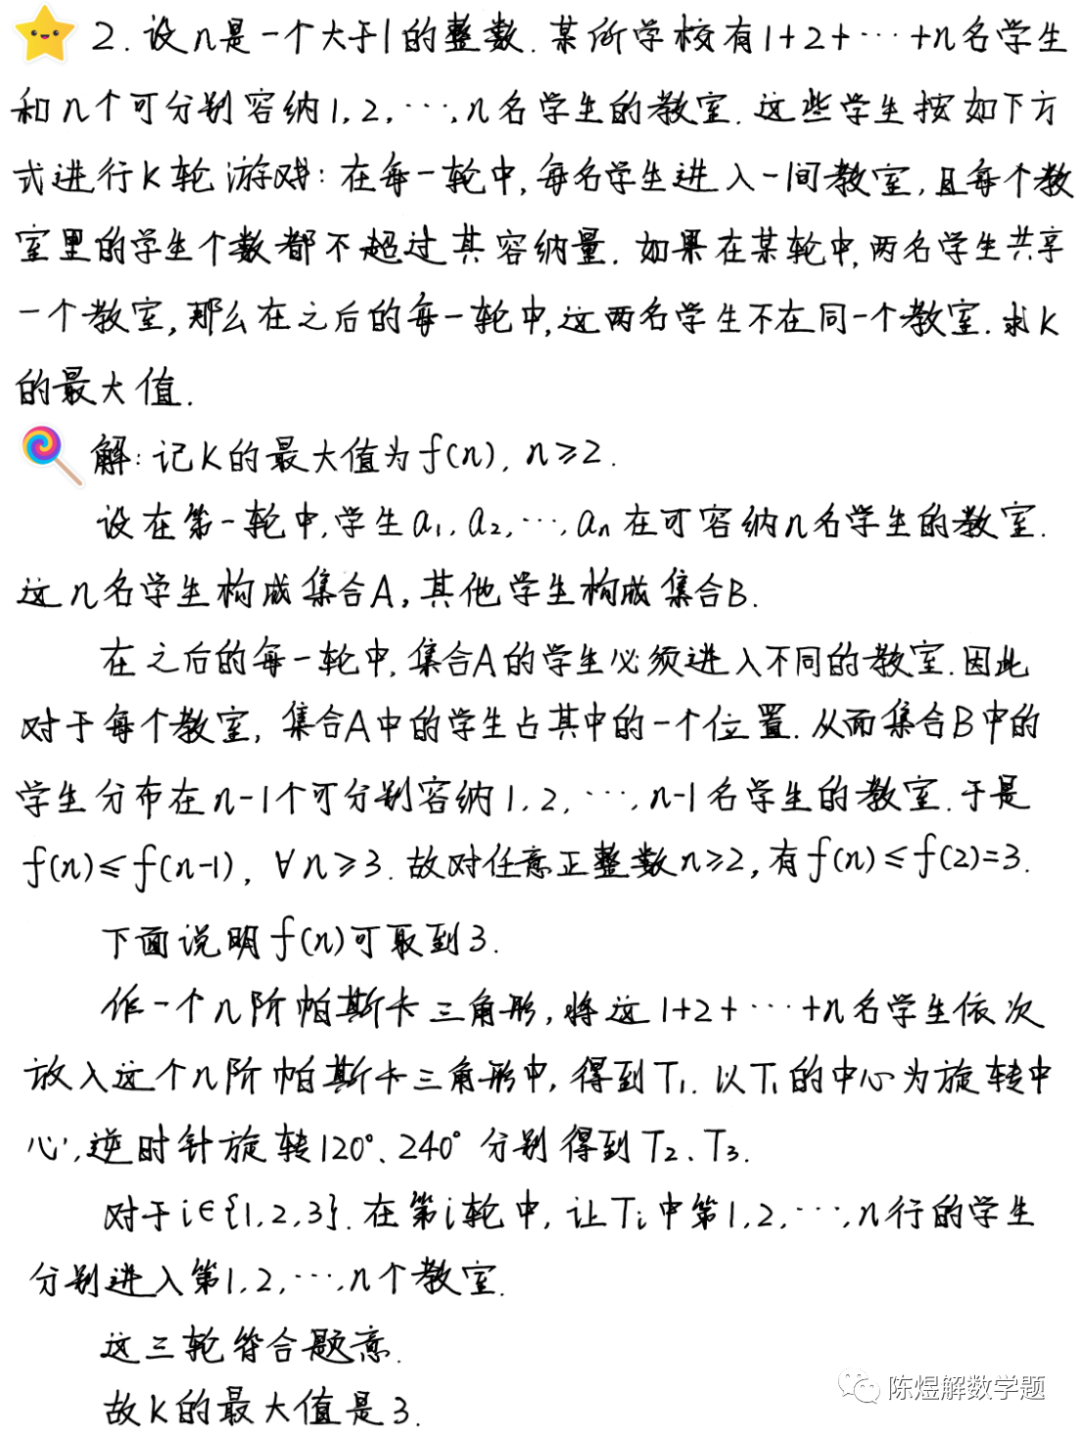 2. 设n是一个大于1的整数. 某所学校有1+2+…+n名学生
和n个可分别容纳1, 2, …, n名学生的教室. 这些学生按如下方
式进行K轮游戏: 在每一轮中, 每名学生进入一间教室, 且每个教
室里的学生个数都不超过其容纳量. 如果在某轮中, 两名学生共享
一个教室, 那么在之后的每一轮中, 这两名学生不在同一个教室. 求K
的最大值.
解: 记K的最大值为f(n), n≥2.
设在第一轮中, 学生a₁, a₂, …, aₙ在可容纳n名学生的教室.
这n名学生构成集合A, 其他学生构成集合B.
在之后的每一轮中, 集合A的学生必须进入不同的教室. 因此
对于每个教室, 集合A中的学生占其中的一个位置. 从而集合B中的
学生分布在n-1个可分别容纳1, 2, …, n-1名学生的教室. 于是
f(n)≤f(n-1), ∀n≥3. 故对任意正整数n≥2, 有f(n)≤f(2)=3.
下面说明f(n)可取到3.
作一个n阶帕斯卡三角形, 将这1+2+…+n名学生依次
放入这个n阶帕斯卡三角形中, 得到T₁. 以T₁的中心为旋转中
心, 逆时针旋转120°、240°分别得到T₂、T₃.
对于i∈{1,2,3}. 在第i轮中, 让Tᵢ中第1, 2, …, n行的学生
分别进入第1, 2, …, n个教室.
这三轮符合题意.
故K的最大值是3.
陈煜解数学题